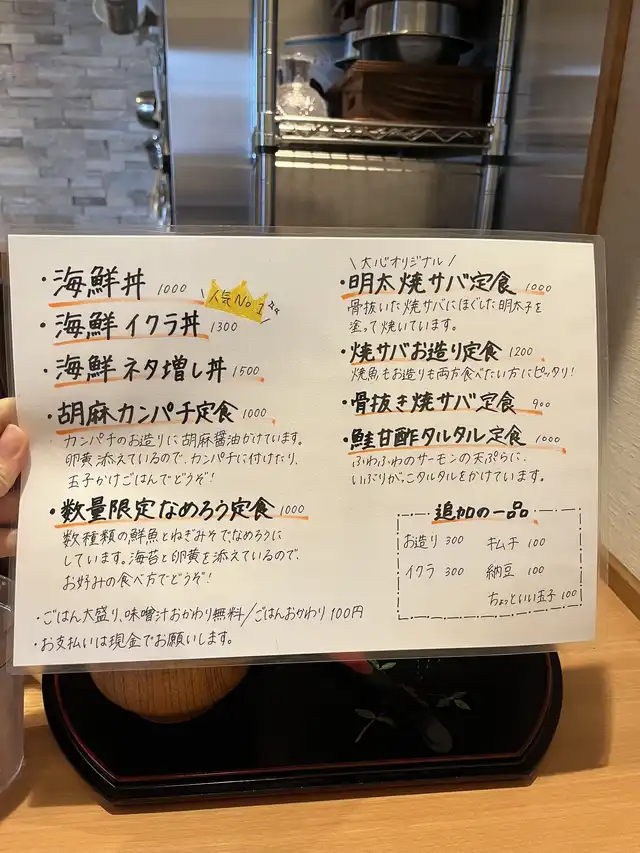 ・海鮮丼 1000
人気No.1
・海鮮イクラ丼 1300
・海鮮ネタ増し丼 1500
・胡麻カンパチ定食 1000
カンパチのお造りに胡麻醤油かけています。
卵黄添えているので、カンパチに付けたり、
玉子かけごはんでどうぞ!
・数量限定なめろう定食 1000
数種類の鮮魚とねぎみそでなめろうに
しています。海苔と卵黄を添えているので、
お好みの食べ方でどうぞ!
・ごはん大盛り、味噌汁おかわり無料/ごはんおかわり100円
・お支払いは現金でお願いします。
\大心オリジナル/
・明太焼サバ定食 1000
骨抜いた焼サバにほぐした明太子を
塗って焼いています。
・焼サバお造り定食 1200
焼魚もお造りも両方食べたい方にピッタリ!
・骨抜き焼サバ定食 900
・鮭甘酢タルタル定食 1000
ふわふわのサーモンの天ぷらに、
いぶりがっこタルタルをかけています。
追加の一品
お造り 300 キムチ 100
イクラ 300 納豆 100
ちょっといい玉子 100